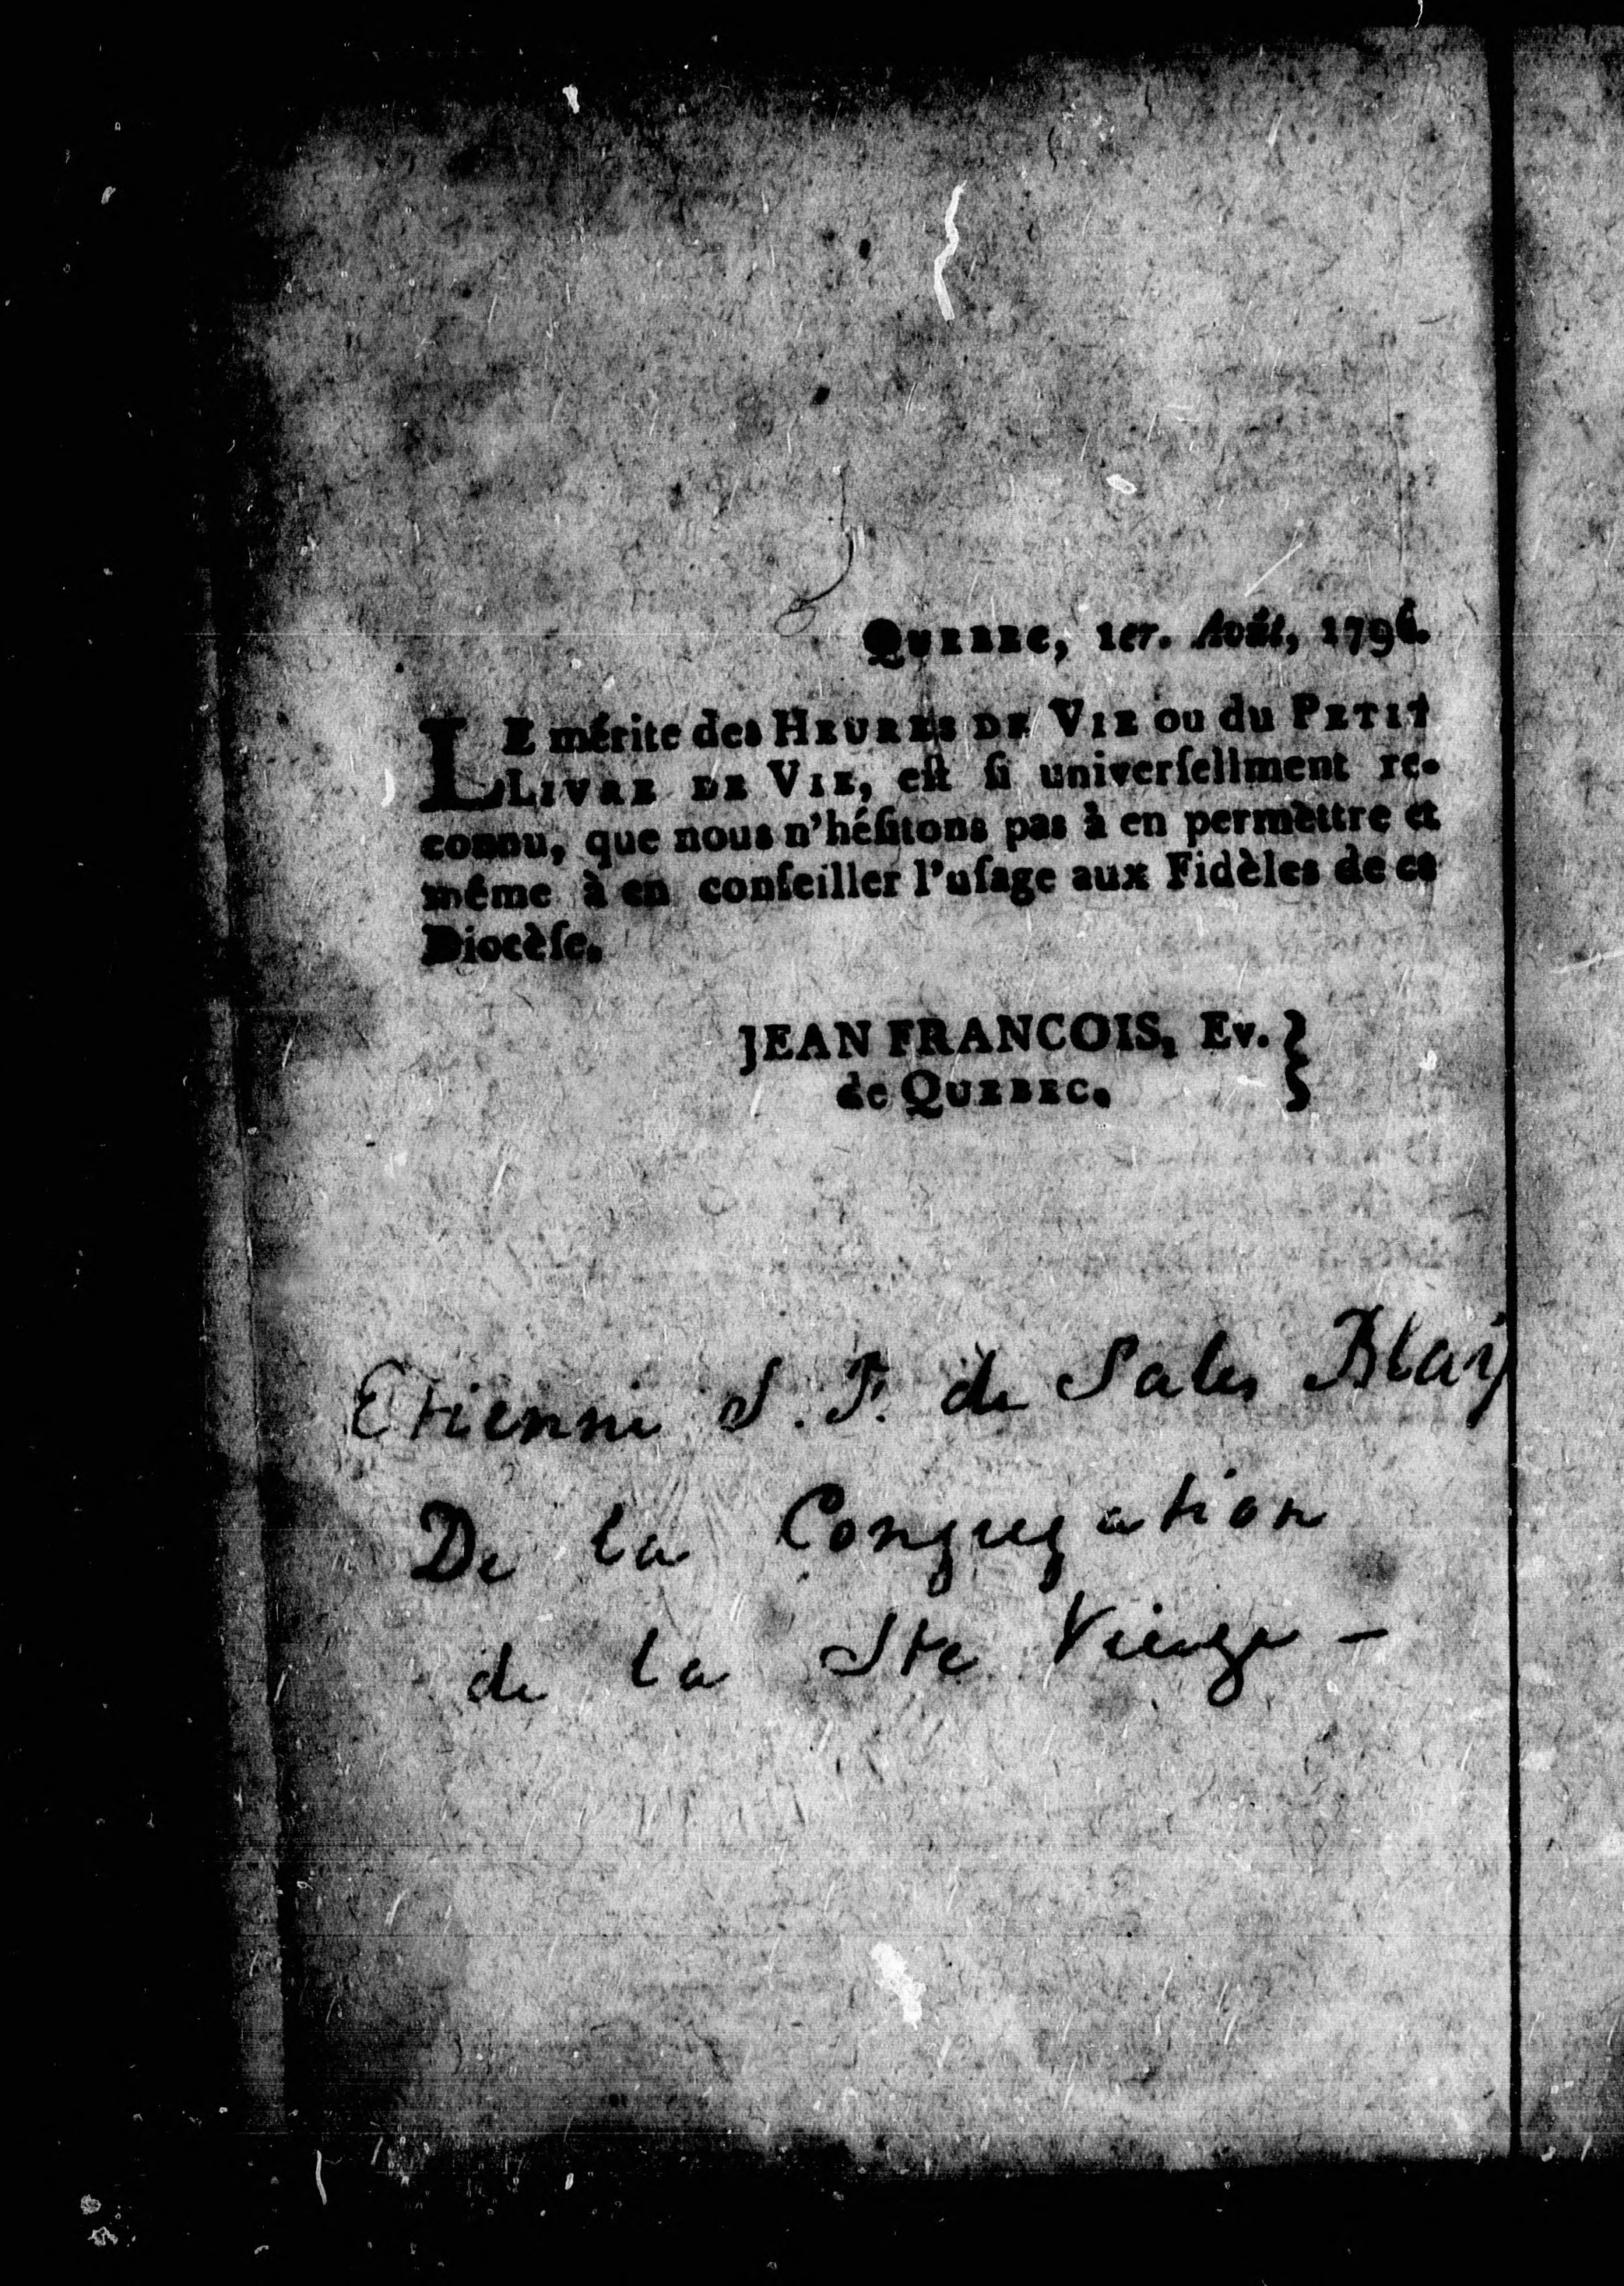 QUEBEC, 1er. Août, 1796.
LE mérite des HEURES DE VIE ou du PETIT
LIVRE DE VIE, eſt ſi univerſellment re-
connu, que nous n'héſitons pas à en permèttre et
même à en conſeiller l'uſage aux Fidèles de ce
Diocèſe.
JEAN FRANCOIS, Ev. }
de QUEBEC.
Etienne S. F. de Sales Blaÿ
De la Congregation
de la Ste Vierge –